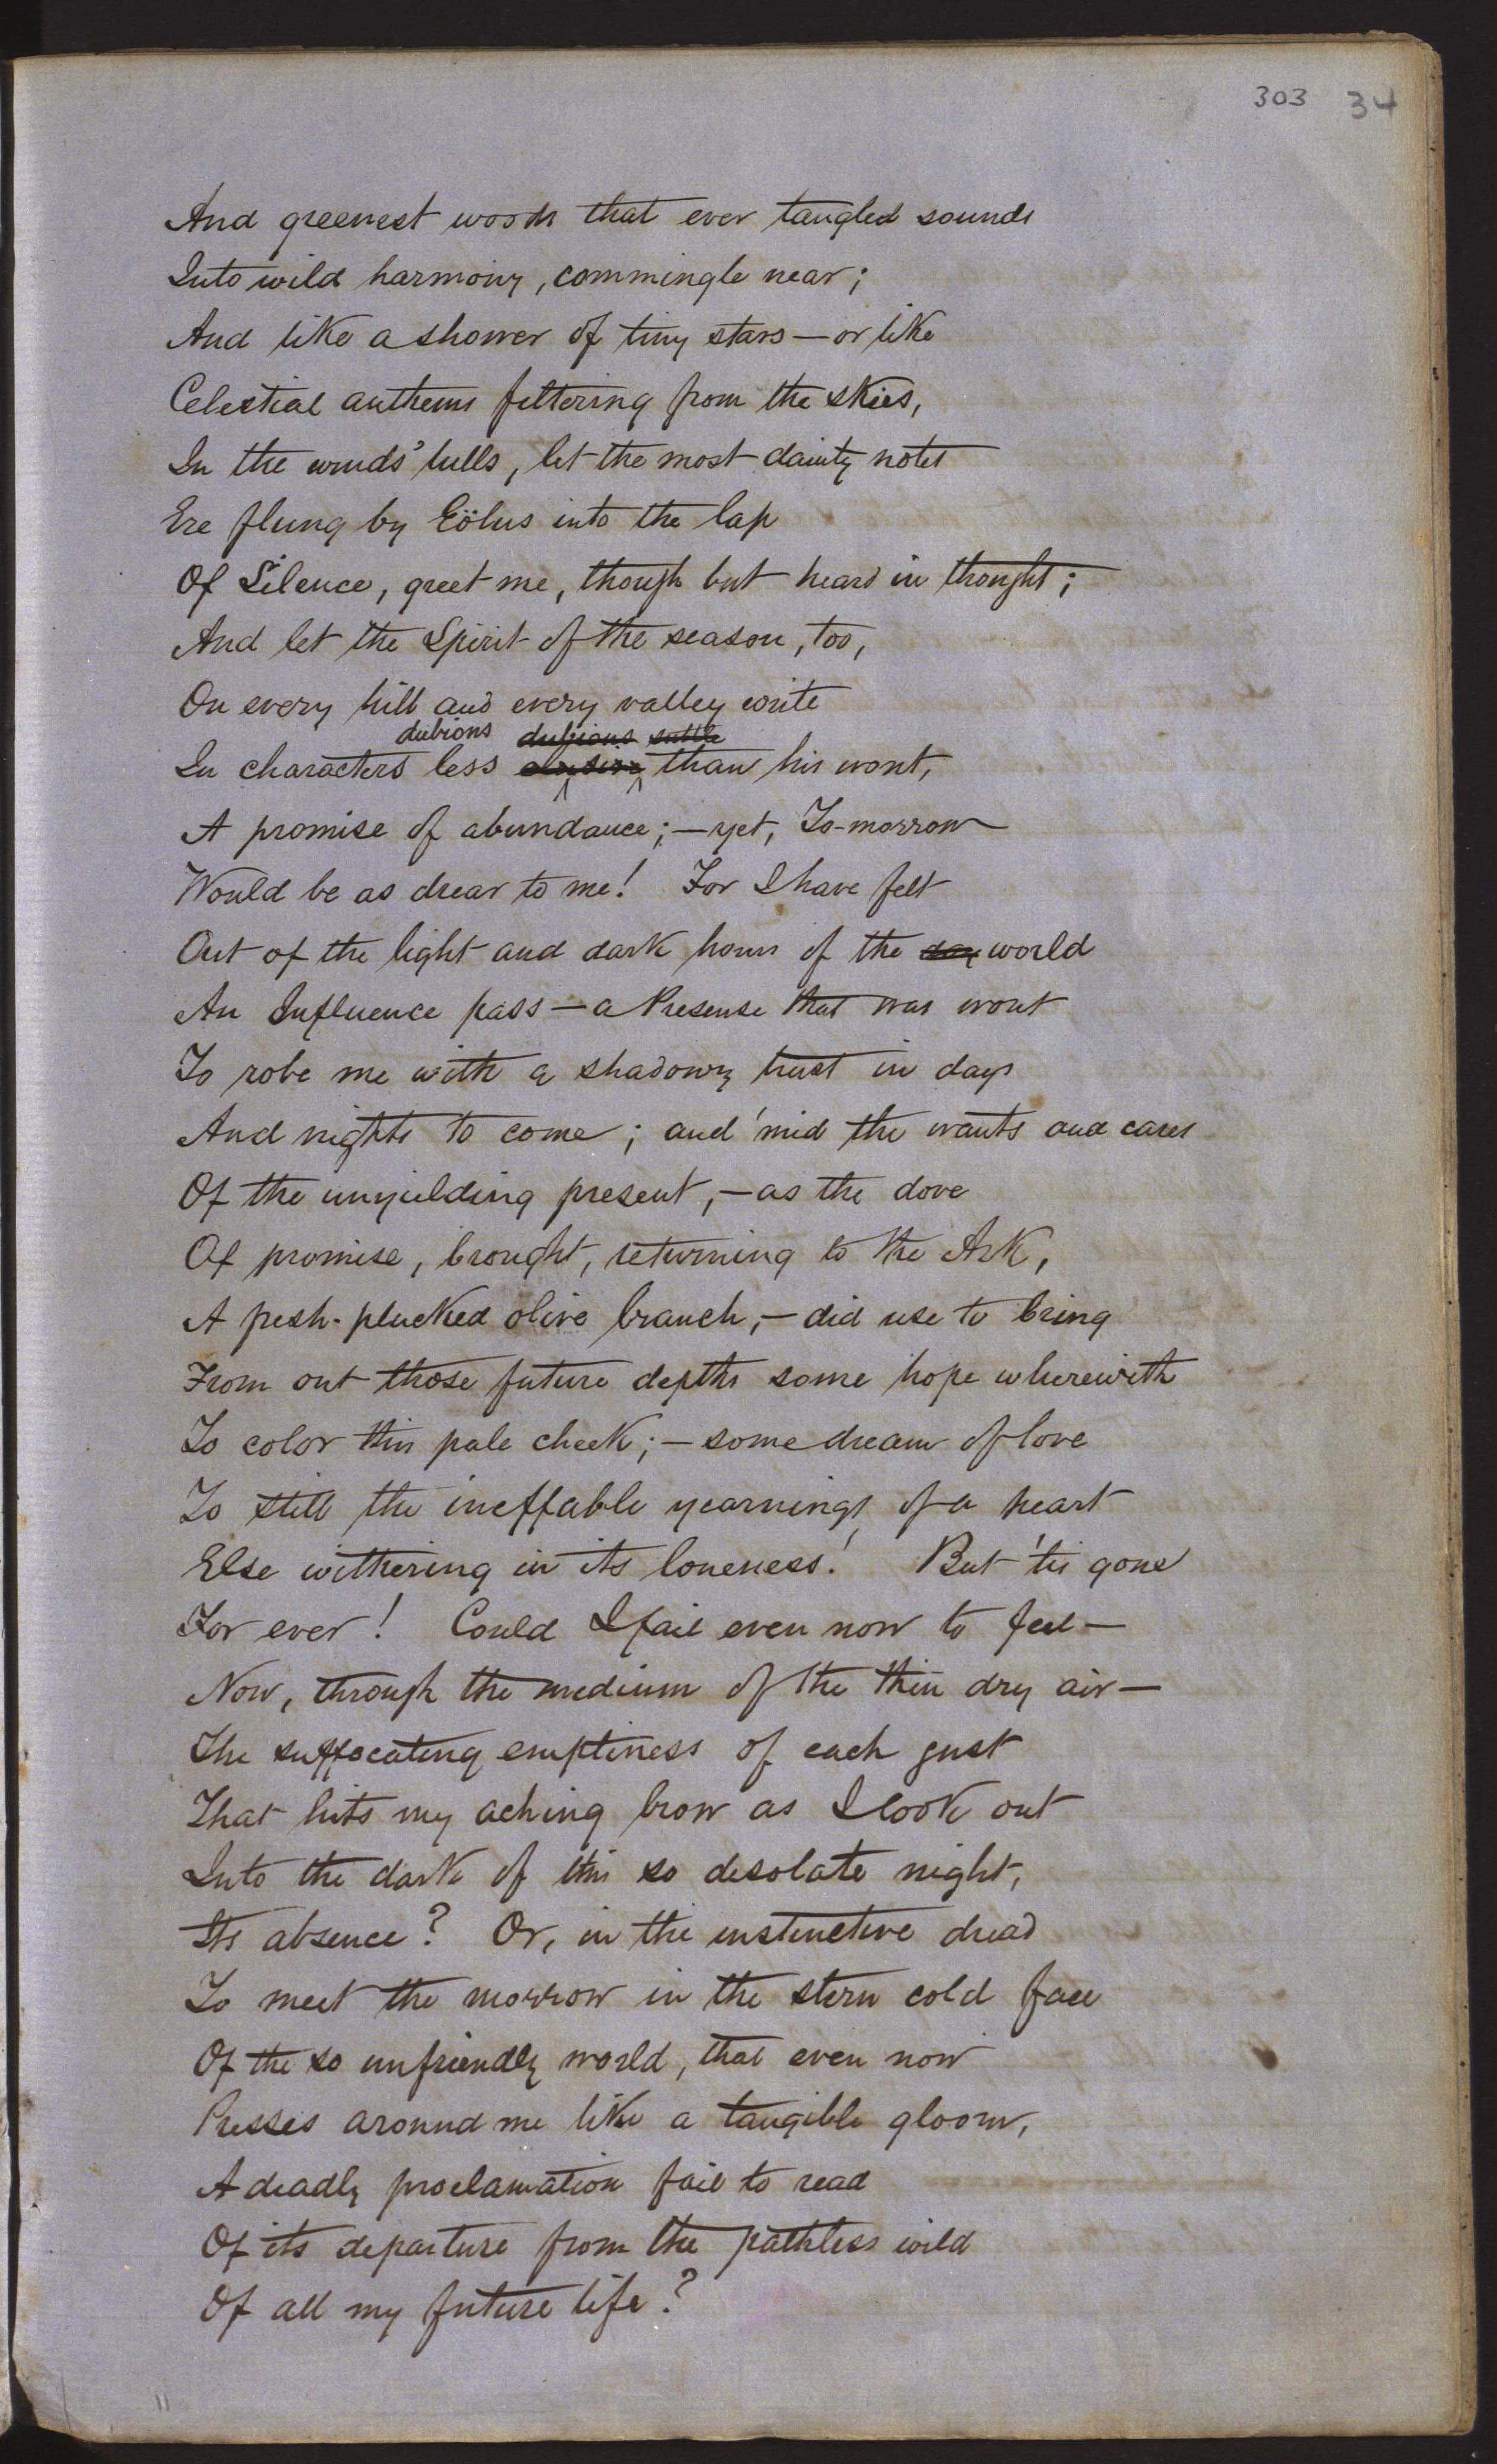 303 34
And greenest woods that ever tangled sounds
Into wild harmony, commingle near;
And like a shower of tiny stars — or like
Celestial anthems filtering from the skies,
In the winds' lulls, let the most dainty notes
Ere flung by Eölus into the lap
Of Silence, greet me, though but heard in thought;
And let the Spirit of the season, too,
On every hill and every valley write
dubious dubious subtle
In characters less elusive than his wont,
A promise of abundance; — yet, To-morrow
Would be as drear to me! For I have felt
Out of the light and dark hours of the day world
An Influence pass — a Presense that was wont
To robe me with a shadowy trust in days
And nights to come; and 'mid the wants and cares
Of the unyielding present, — as the dove
Of promise, brought, returning to the Ark,
A fresh-plucked olive branch, — did use to bring
From out those future depths some hope wherewith
To color this pale cheek; — some dream of love
To still the ineffable yearnings of a heart
Else withering in its loneness! But 'tis gone
For ever! Could I fail even now to feel —
Now, through the medium of the thin dry air —
The suffocating emptiness of each gust
That hits my aching brow as I look out
Into the dark of this so desolate night,
Its absence? Or, in the instinctive dread
To meet the morrow in the stern cold face
Of the so unfriendly world, that even now
Presses around me like a tangible gloom,
A deadly proclamation fail to read
Of its departure from the pathless wild
Of all my future life?